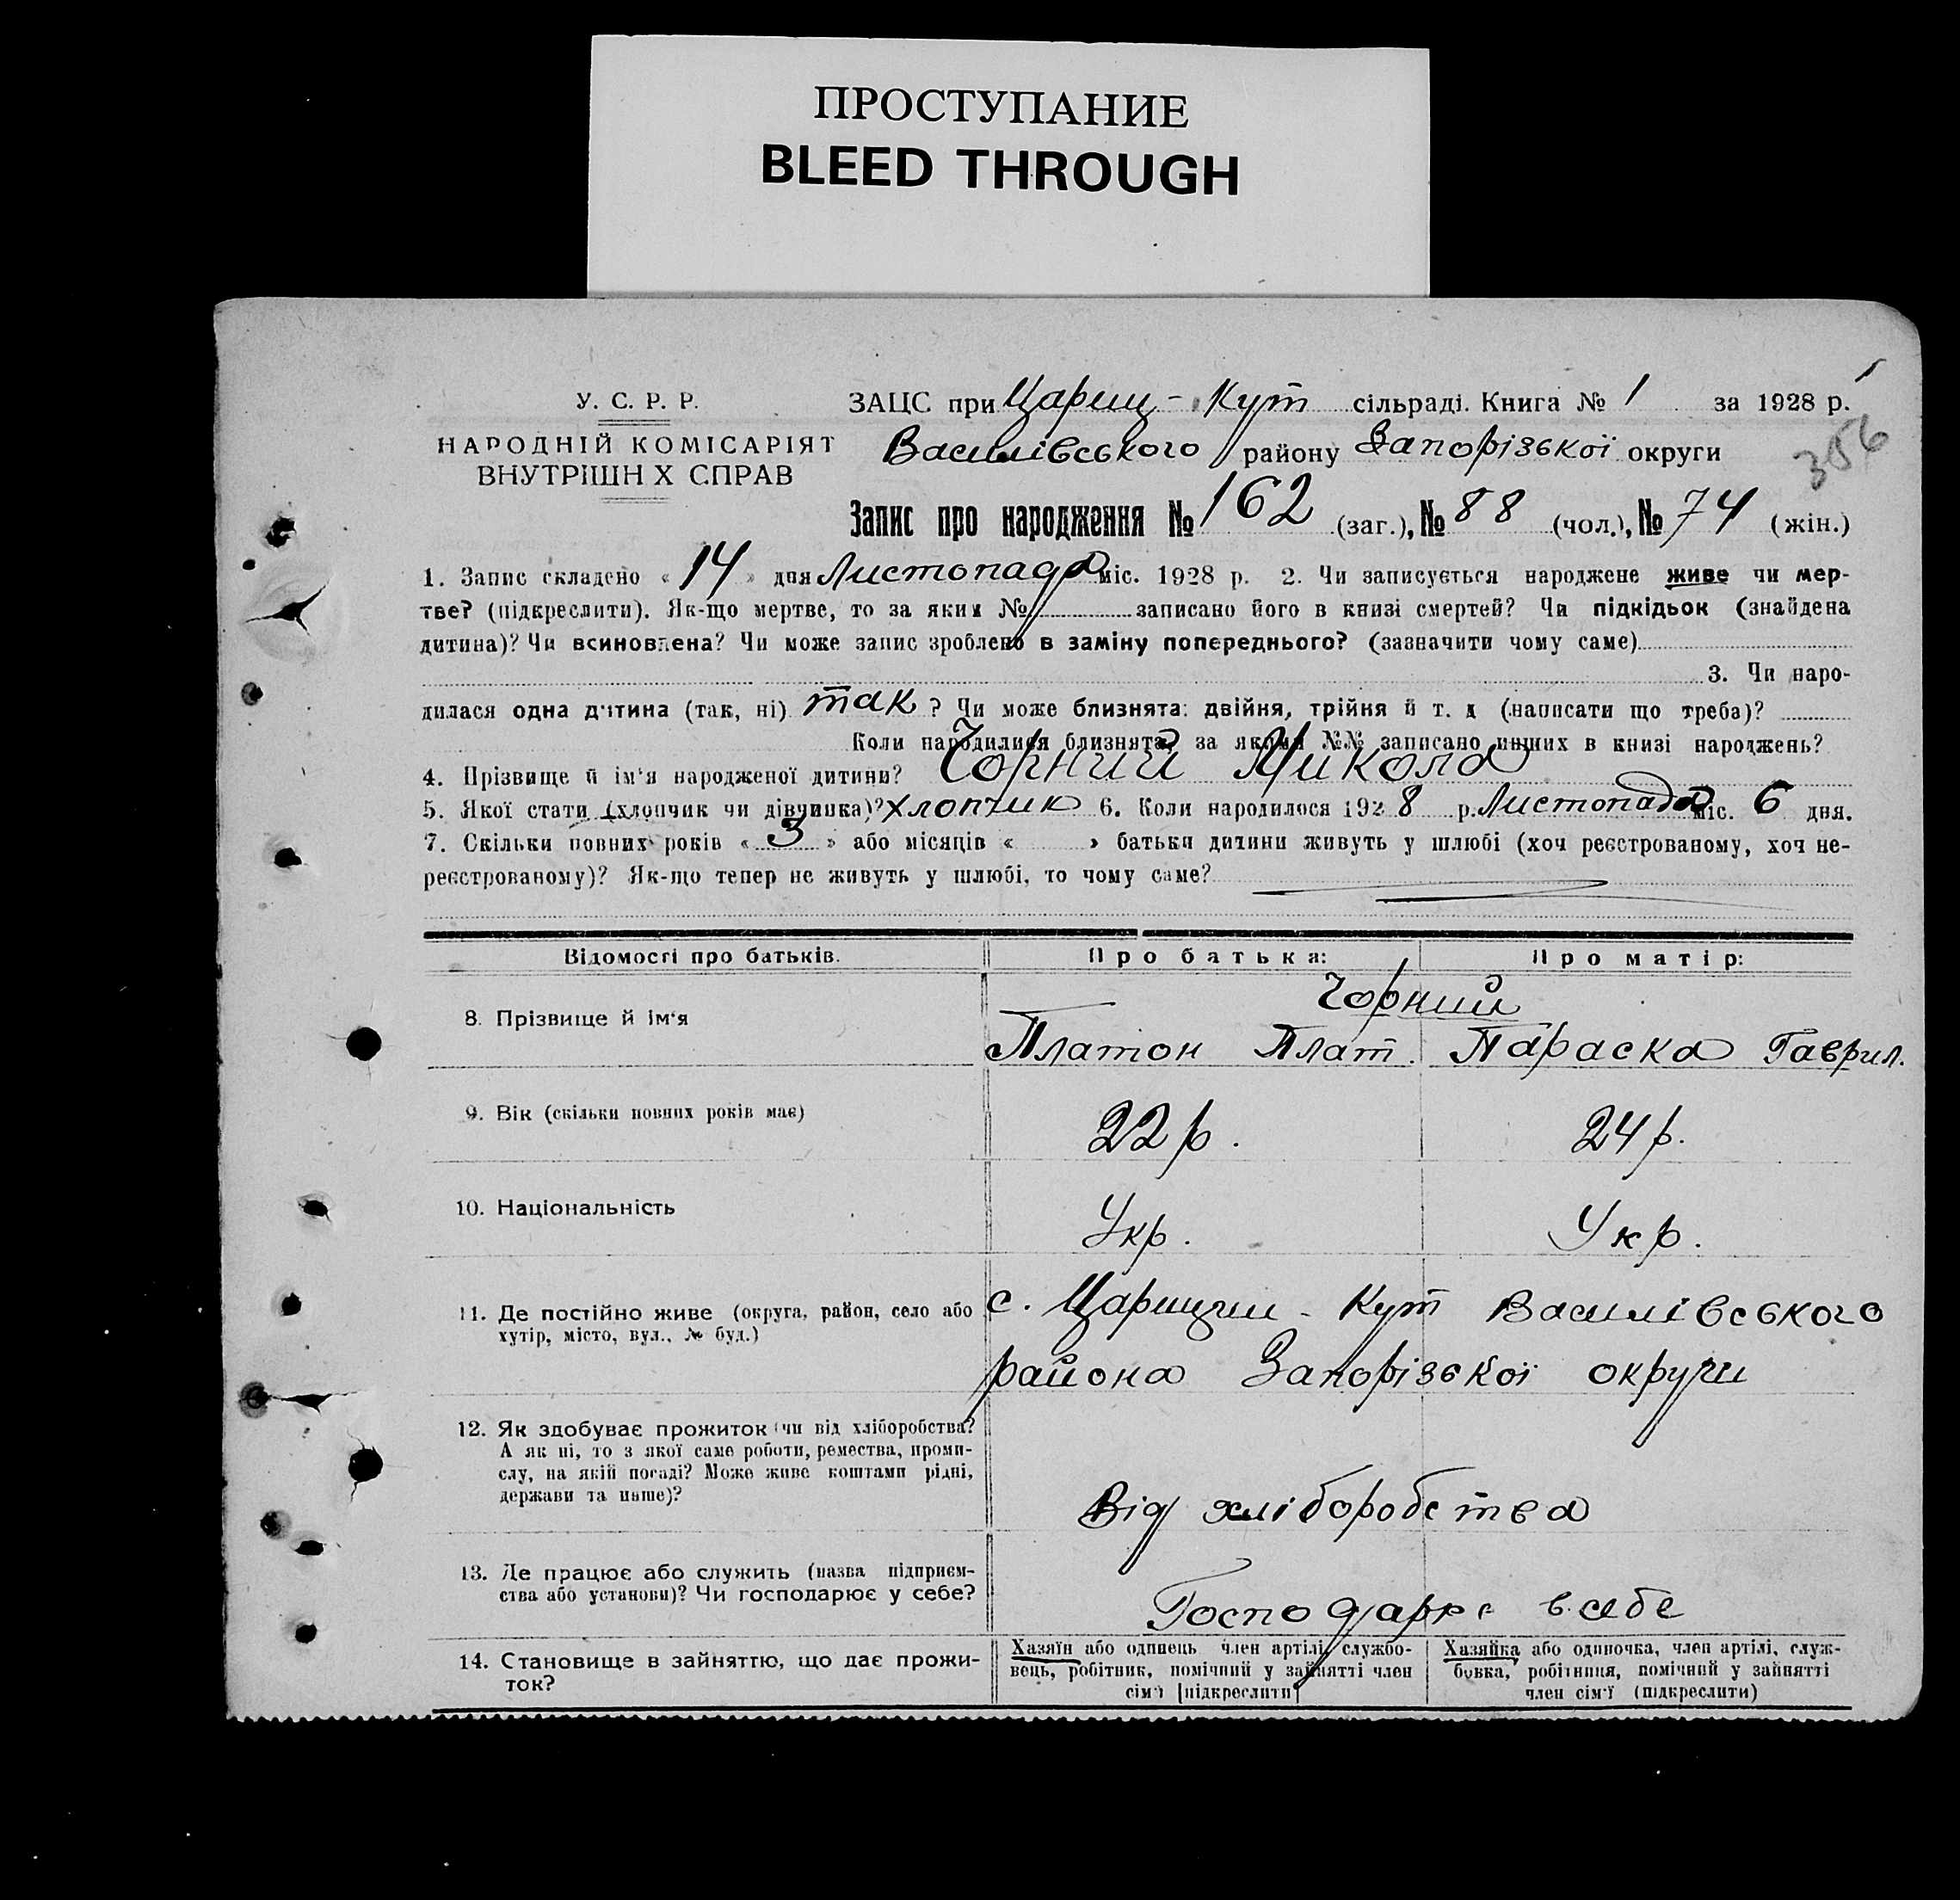 ПРОСТУПАНИЕ
BLEED THROUGH
У. С. Р. Р.
НАРОДНІЙ КОМІСАРІЯТ
ВНУТРІШН Х СПРАВ
ЗАЦС при Цариц - Кут сільраді. Книга № 1 за 1928 р.
Василівського району Запорізької округи
356
Запис про народження № 162 (заг.), № 88 (чол.), № 74 (жін.)
1. Запис складено « 14 » дня Листопада міс. 1928 р. 2. Чи записується народжене живе чи мер-
тве? (підкреслити). Як-що мертве, то за яким № записано його в книзі смертей? Чи підкідьок (знайдена
дитина)? Чи всиновлена? Чи може запис зроблено в заміну попереднього? (зазначити чому саме)
3. Чи наро-
дилася одна дитина (так, ні) так ? Чи може близнята: двійня, трійня й т. д (написати що треба)?
Коли народилися близнята, за якими №№ записано инших в книзі народжень?
4. Прізвище й ім'я народженої дитини? Чорний Микола
5. Якої стати (хлопчик чи дівчинка)? хлопчик 6. Коли народилося 1928 р. Листопада міс. 6 дня.
7. Скільки повних років « 3 » або місяців « » батьки дитини живуть у шлюбі (хоч реєстрованому, хоч не-
реєстрованому)? Як-що тепер не живуть у шлюбі, то чому саме?
Відомості про батьків. Про батька: Про матір:
Чорний
8. Прізвище й ім'я Платон Плат. Параска Гаврил.
9. Вік (скільки повних років має) 22 р. 24 р.
10. Національність Укр. Укр.
11. Де постійно живе (округа, район, село або с. Царицин - Кут Василівського
хутір, місто, вул., № буд.) района Запорізької округи
12. Як здобуває прожиток (чи від хліборобства?
А як ні, то з якої саме роботи, ремества, проми-
слу, на якій посаді? Може живе коштами рідні,
держави та инше)? Від хліборобства
13. Де працює або служить (назва підприєм-
ства або установи)? Чи господарює у себе? Господарює в себе
14. Становище в зайняттю, що дає прожи-
ток?
Хазяїн або одинець член артілі, службо-
вець, робітник, помічний у зайнятті член
сім'ї (підкреслити)
Хазяйка або одиночка, член артілі, служ-
бовка, робітниця, помічний у зайнятті
член сім'ї (підкреслити)